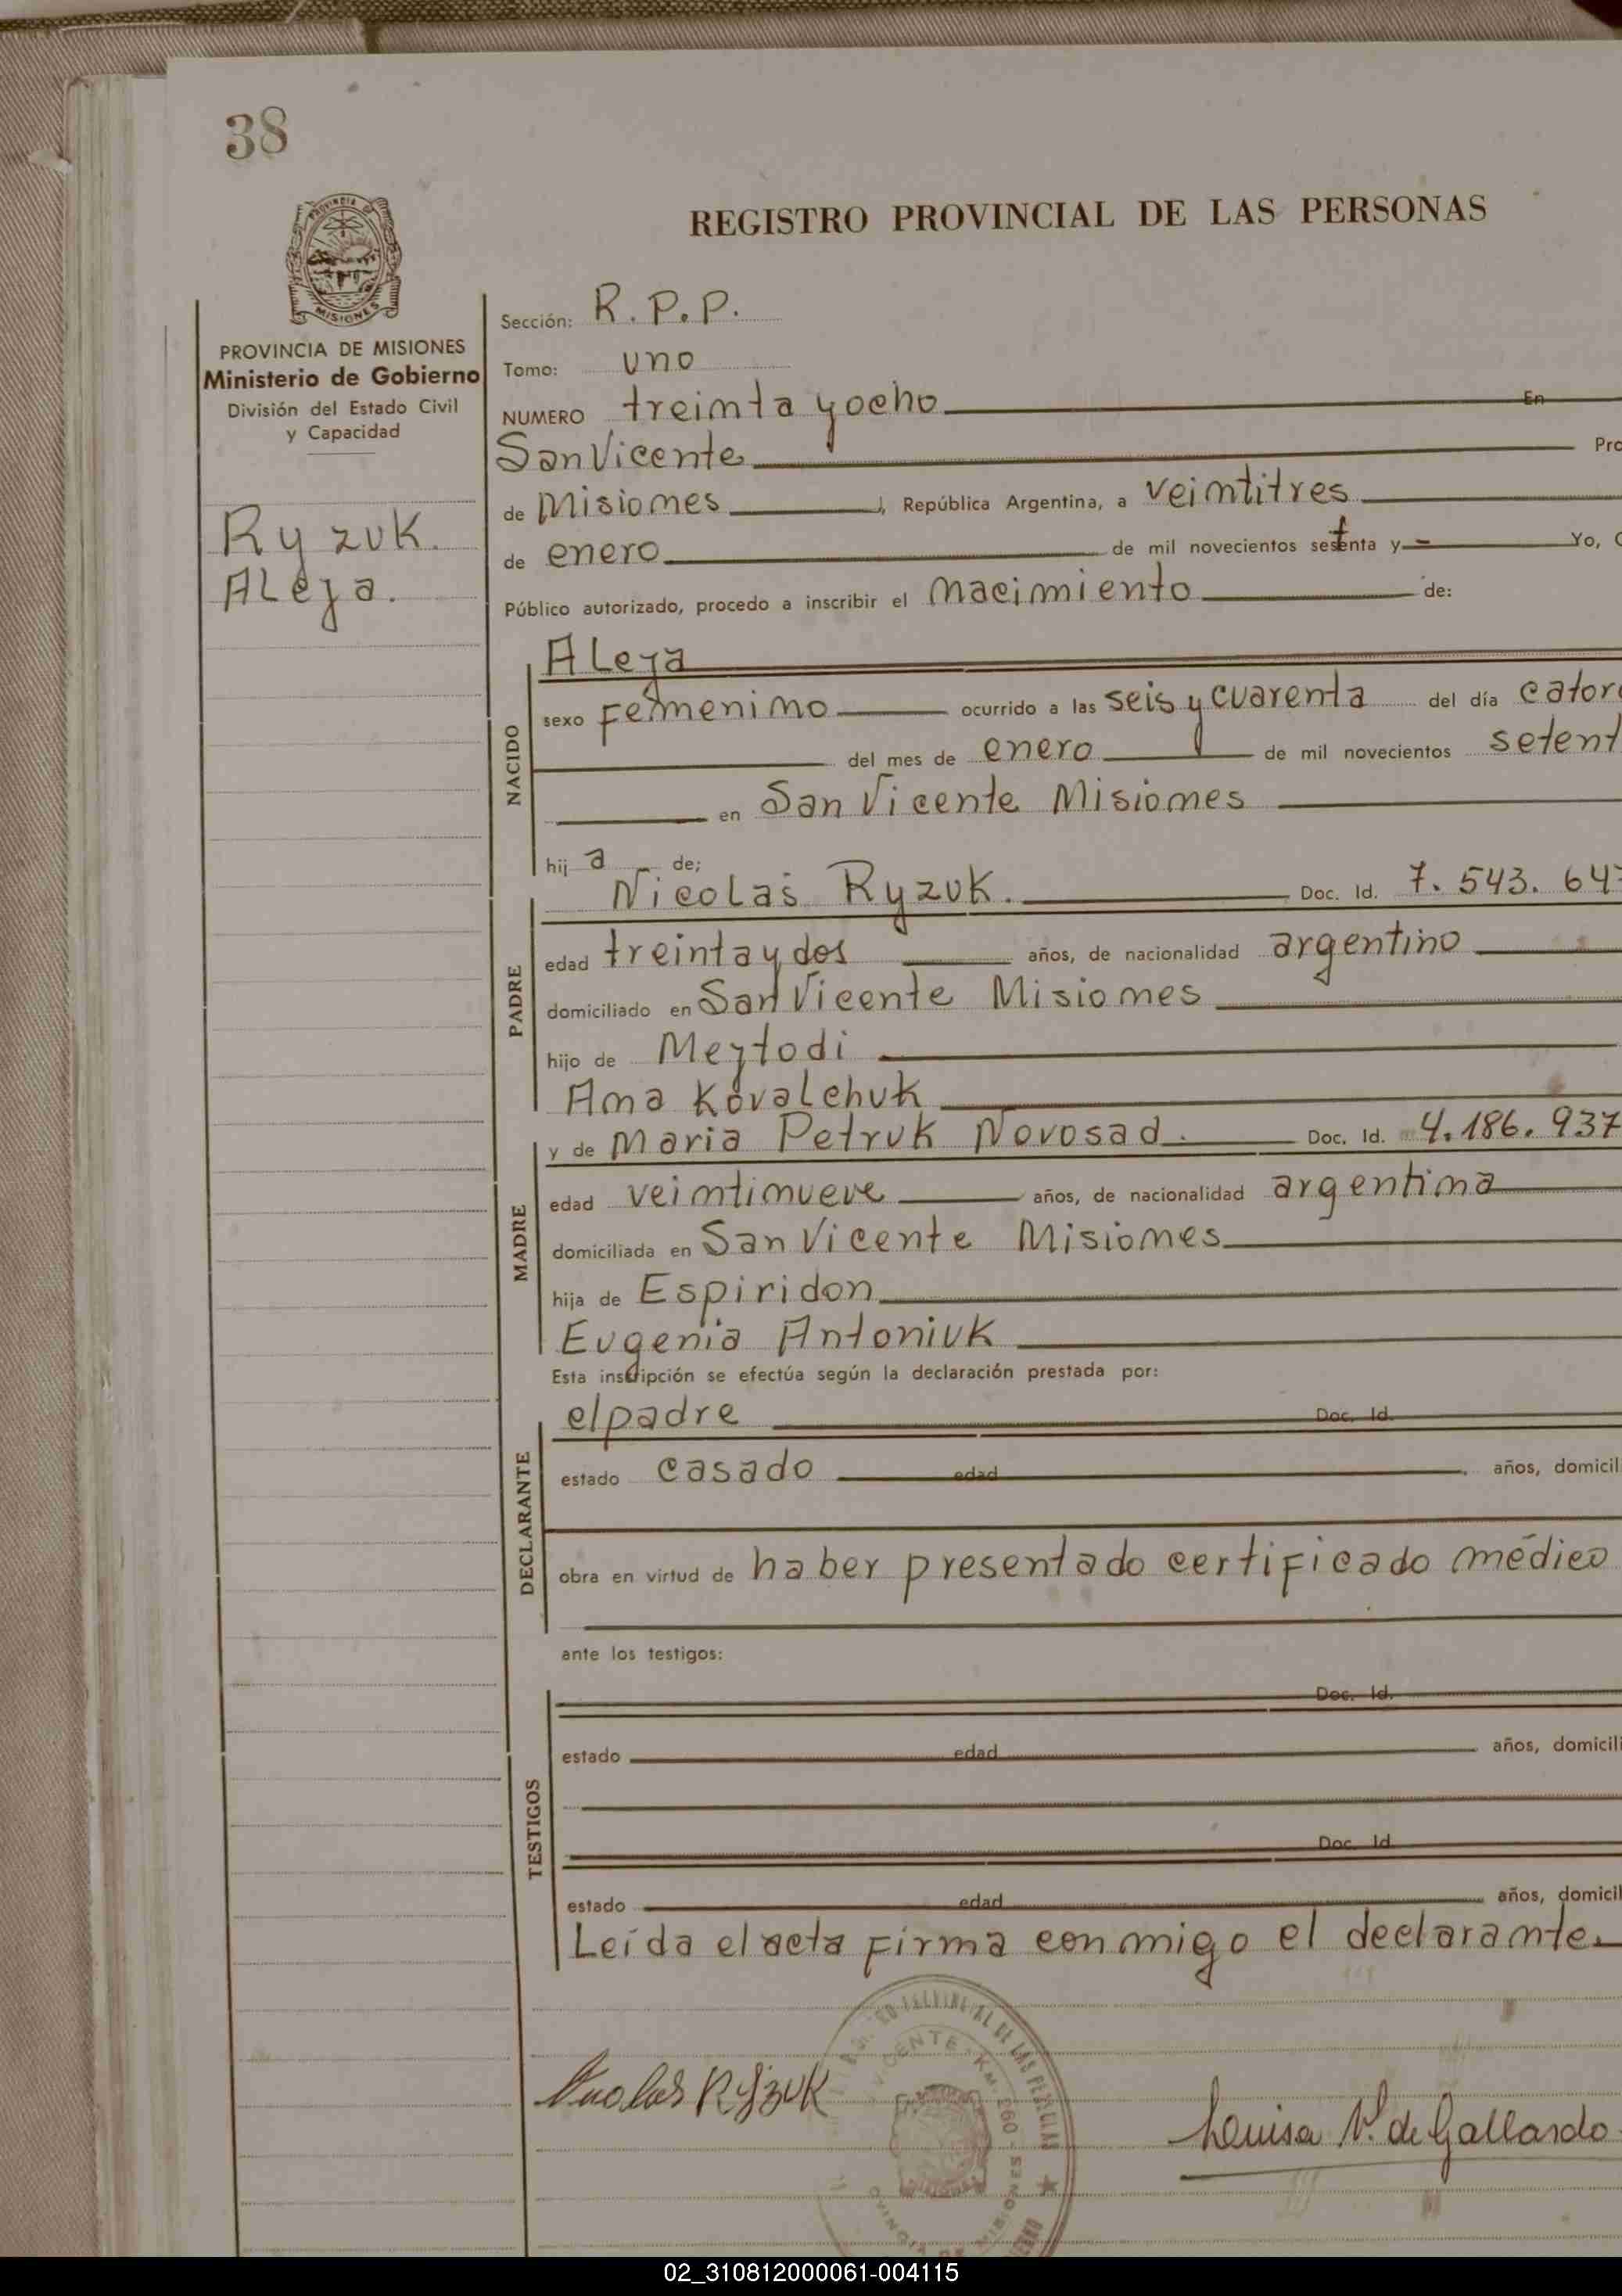 38
REGISTRO PROVINCIAL DE LAS PERSONAS
PROVINCIA DE
MISIONES
PROVINCIA DE MISIONES
Ministerio de Gobierno
División del Estado Civil
y Capacidad
Ryzuk.
Aleja.
Sección: R.P.P.
Tomo: uno
NUMERO treinta y ocho En
San Vicente Pro
de Misiones, República Argentina, a veintitres
de enero de mil novecientos setenta y - Yo,
Público autorizado, procedo a inscribir el nacimiento de:
NACIDO
Aleja
sexo Femenino ocurrido a las seis y cuarenta del día cator
del mes de enero de mil novecientos setent
en San Vicente Misiones
hija de;
PADRE
Nicolas Ryzuk. Doc. Id. 7.543.64
edad treinta y dos años, de nacionalidad argentino
domiciliado en San Vicente Misiones
hijo de Meytodi
Ana Kovalchuk
MADRE
y de Maria Petruk Novosad. Doc. Id. 4.186.937
edad veintinueve años, de nacionalidad argentina
domiciliada en San Vicente Misiones
hija de Espiridon
Eugenia Antoniuk
Esta inscripción se efectúa según la declaración prestada por:
DECLARANTE
el padre Doc. Id.
estado casado edad años, domicil
obra en virtud de haber presentado certificado médico
ante los testigos:
TESTIGOS
Doc. Id.
estado edad años, domicili
Doc. Id
estado edad años, domicil
Leída el acta firma conmigo el declarante.
Nicolas Ryzuk
Louisa N. de Gallardo
02_310812000061-004115